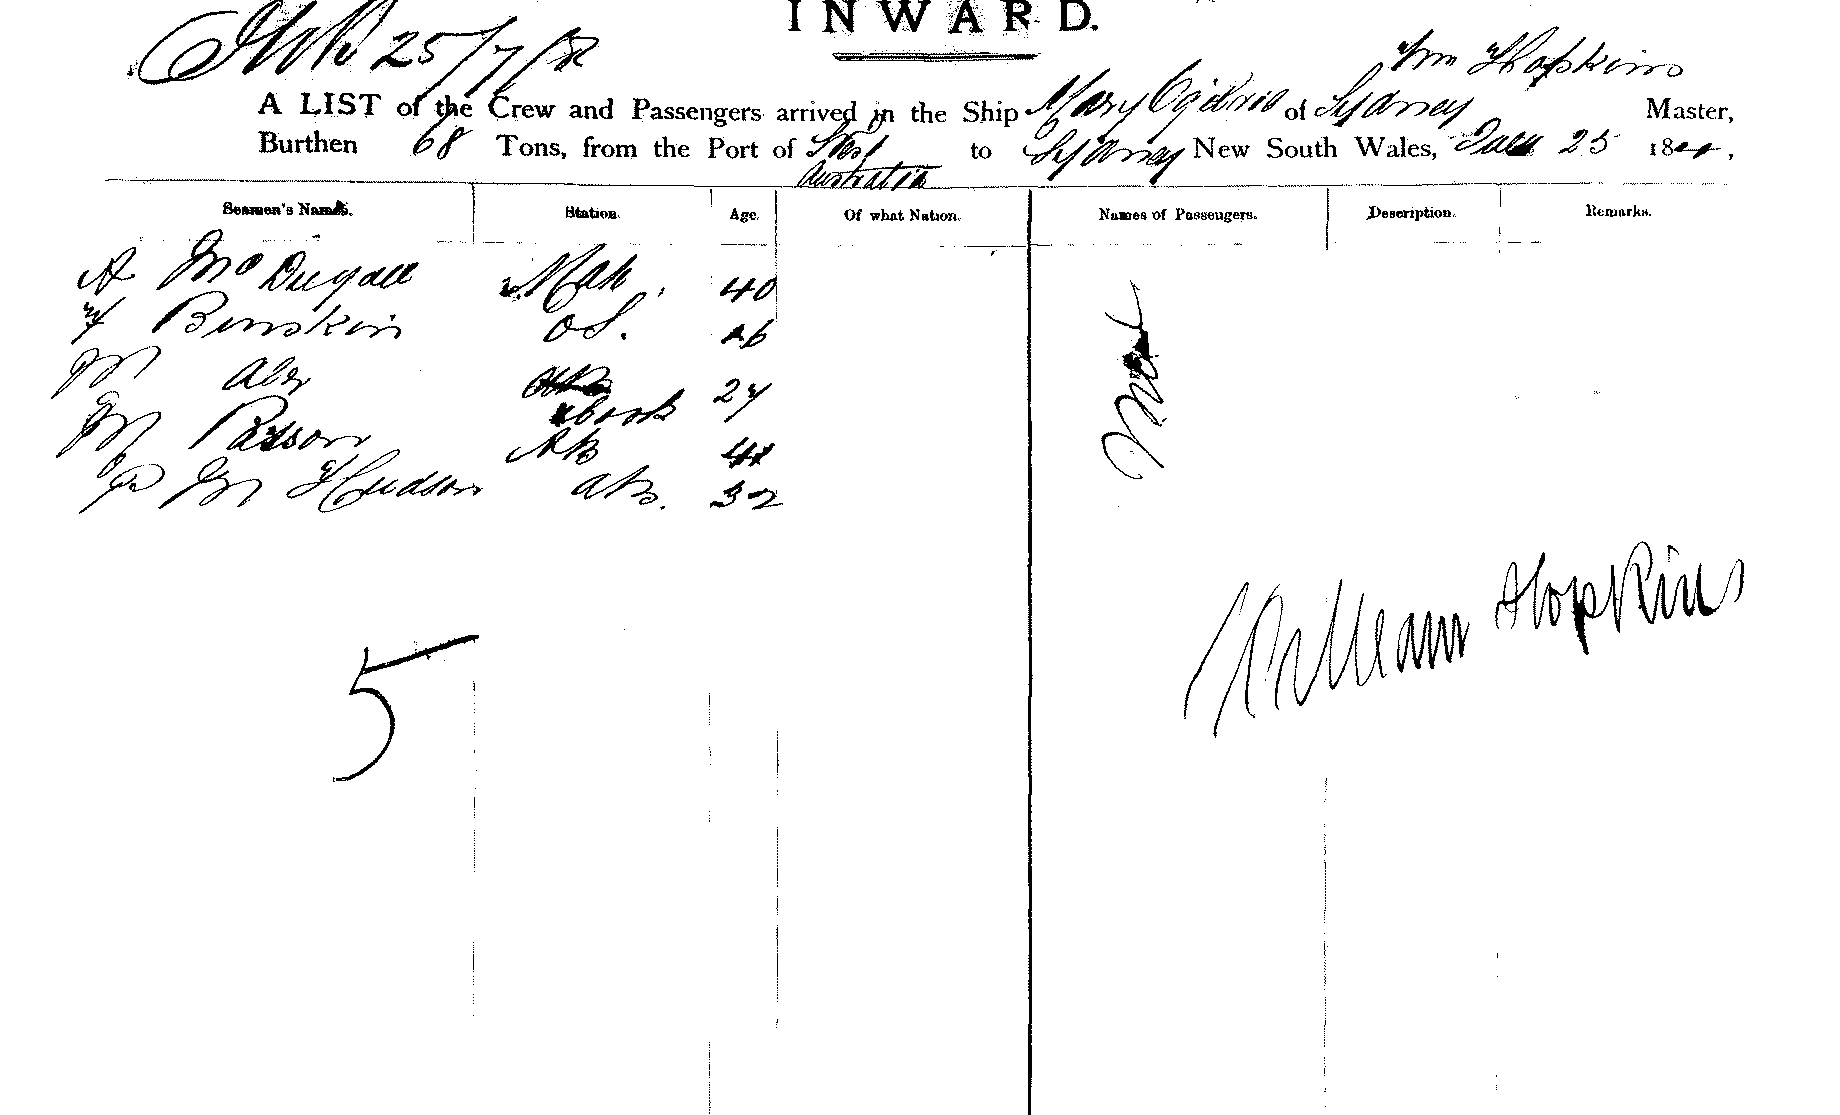 INWARD.
25/7/82
Wm Hopkins
A LIST of the Crew and Passengers arrived in the Ship Mary Ogilvie of Sydney Master,
Burthen 68 Tons, from the Port of West Australia to Sydney New South Wales, 25 18
Seamen's Names. Station. Age. Of what Nation. Names of Passengers. Description. Remarks.
A McDugall Mate 40
W Binskin OS. 26
M Alex Cook 27
M Passon AB 41
P M Hudson AB. 32
5
William Hopkins